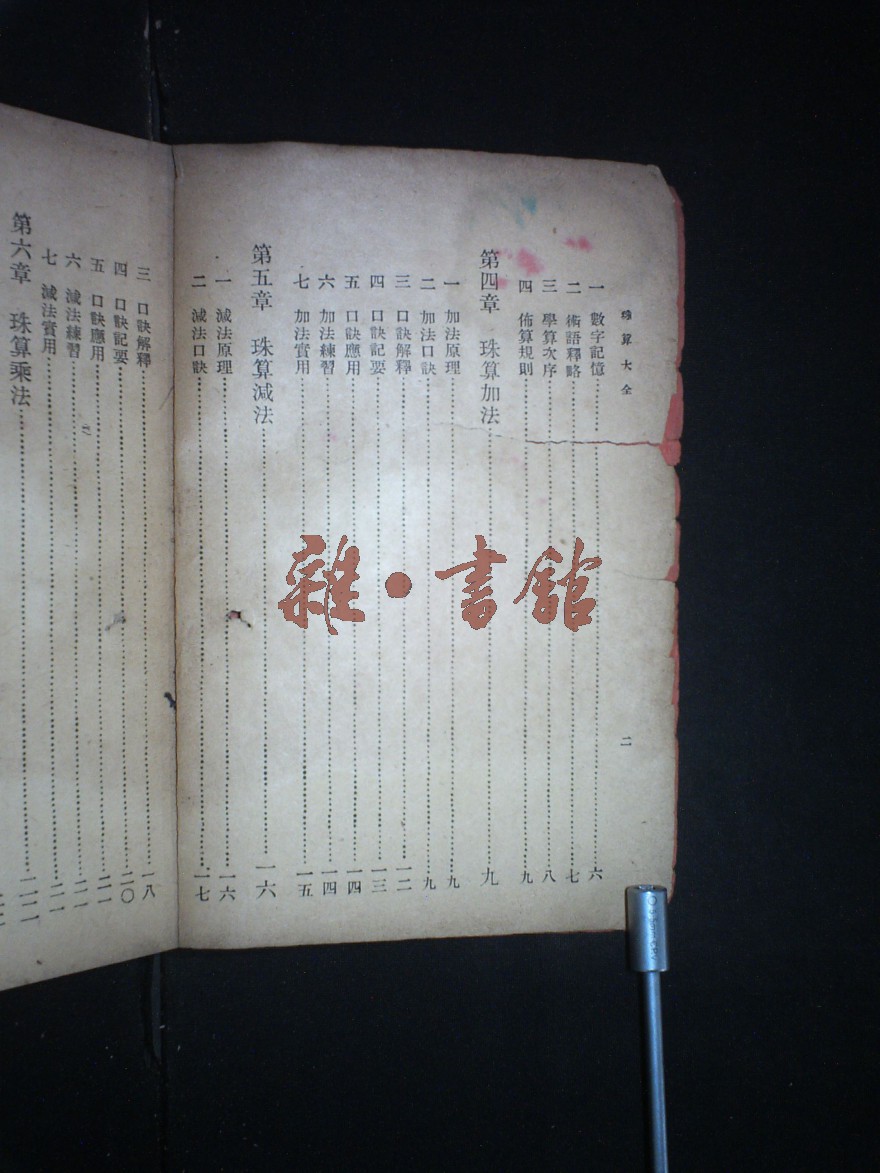 珠算大全
二
一 數字記憶……六
二 術語釋略……七
三 學算次序……八
四 佈算規則……九
第四章 珠算加法……九
一 加法原理……九
二 加法口訣……九
三 口訣解釋……一二
四 口訣記要……一三
五 口訣應用……一四
六 加法練習……一四
七 加法實用……一五
第五章 珠算減法……一六
一 減法原理……一六
二 減法口訣……一七
三 口訣解釋……一八
四 口訣記要……二〇
五 口訣應用……二一
六 減法練習……二一
七 減法實用……二一
第六章 珠算乘法……
雜·書館